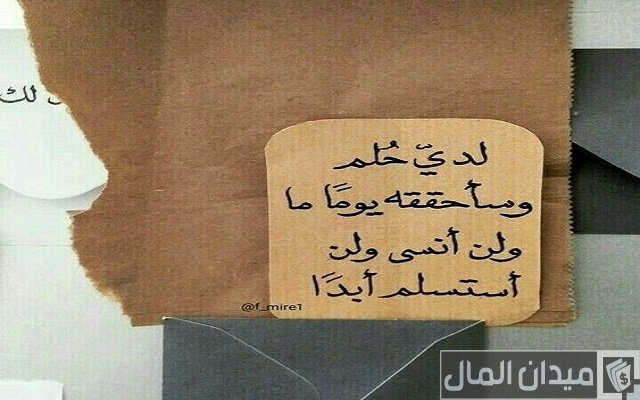 لك
لديّ حُلم
وسأحققه يومًا ما
ولن أنسى ولن
أستسلم أبدًا
@f_mire1
ميدان المال